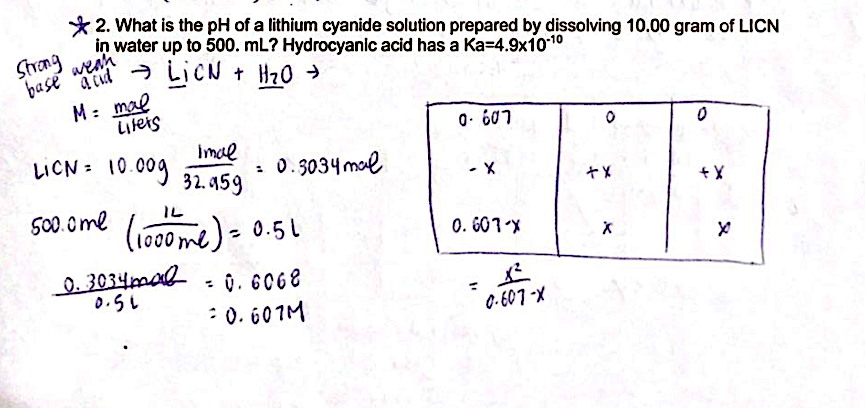 ☆ 2. What is the pH of a lithium cyanide solution prepared by dissolving 10.00 gram of LiCN
in water up to 500. mL? Hydrocyanic acid has a Ka=4.9x10⁻¹⁰
Strong base weak acid → LiCN + H₂O →
M = mol / Liters
LiCN = 10.00g 1mol / 32.95g = 0.3034 mol
500.0ml (1L / 1000 ml) = 0.5 L
0.3034 mol / 0.5 L = 0.6068
= 0.607M
0.607 0 0
-x +x +x
0.607-x x x
= x² / 0.607-x